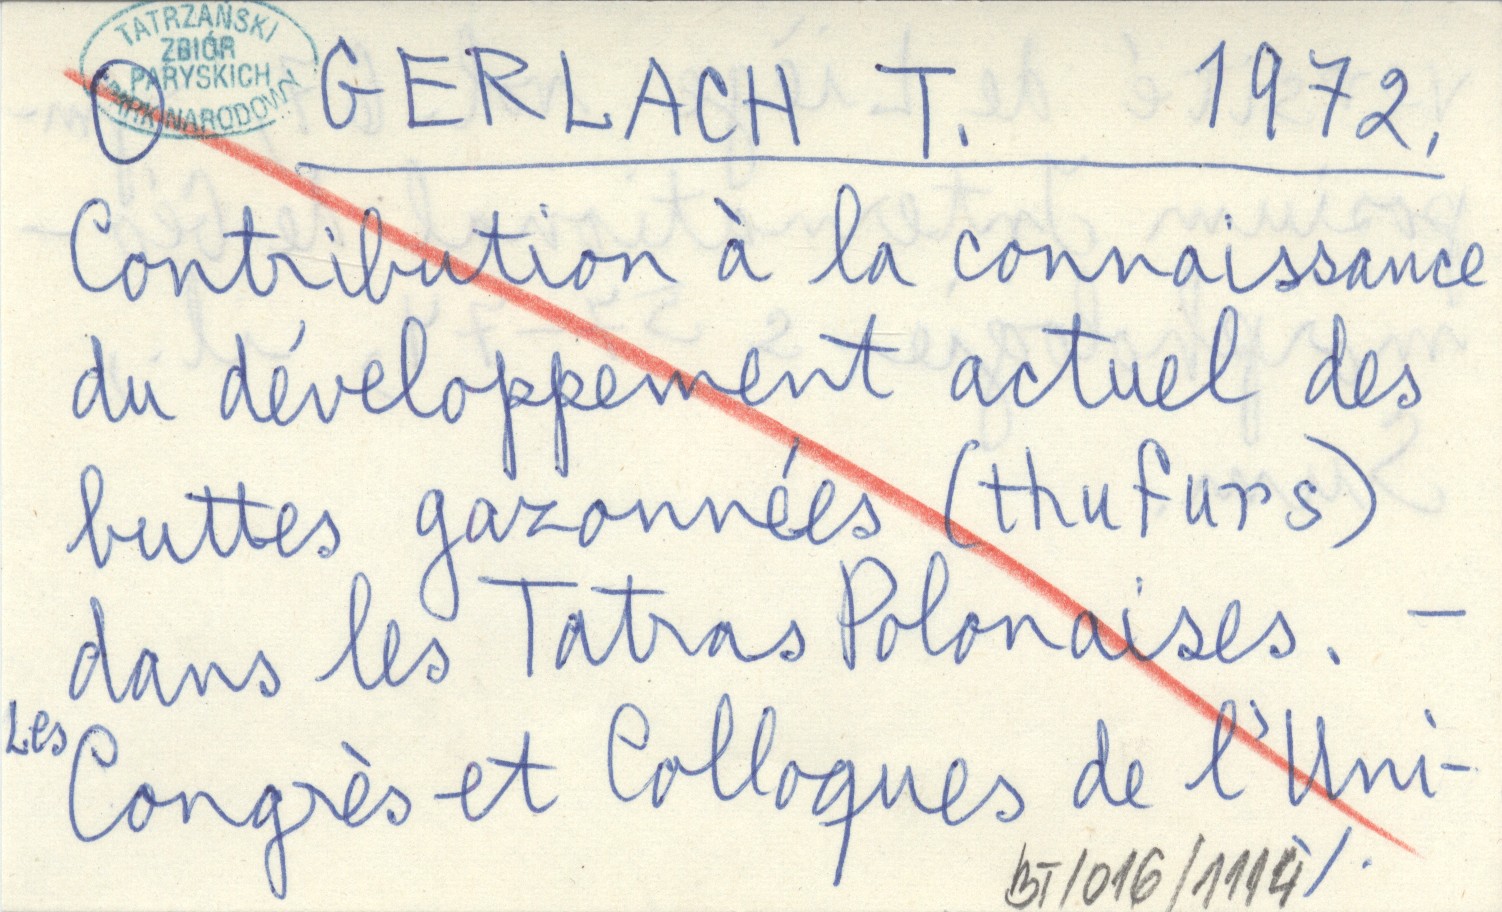 TATRZAŃSKI
ZBIÓR
PARYSKICH
PARK NARODOWY
O GERLACH T. 1972.
Contribution à la connaissance
du développement actuel des
buttes gazonnées (thufurs)
dans les Tatras Polonaises. —
Les Congrès et Colloques de l'Uni-
BT/016/1114 /.